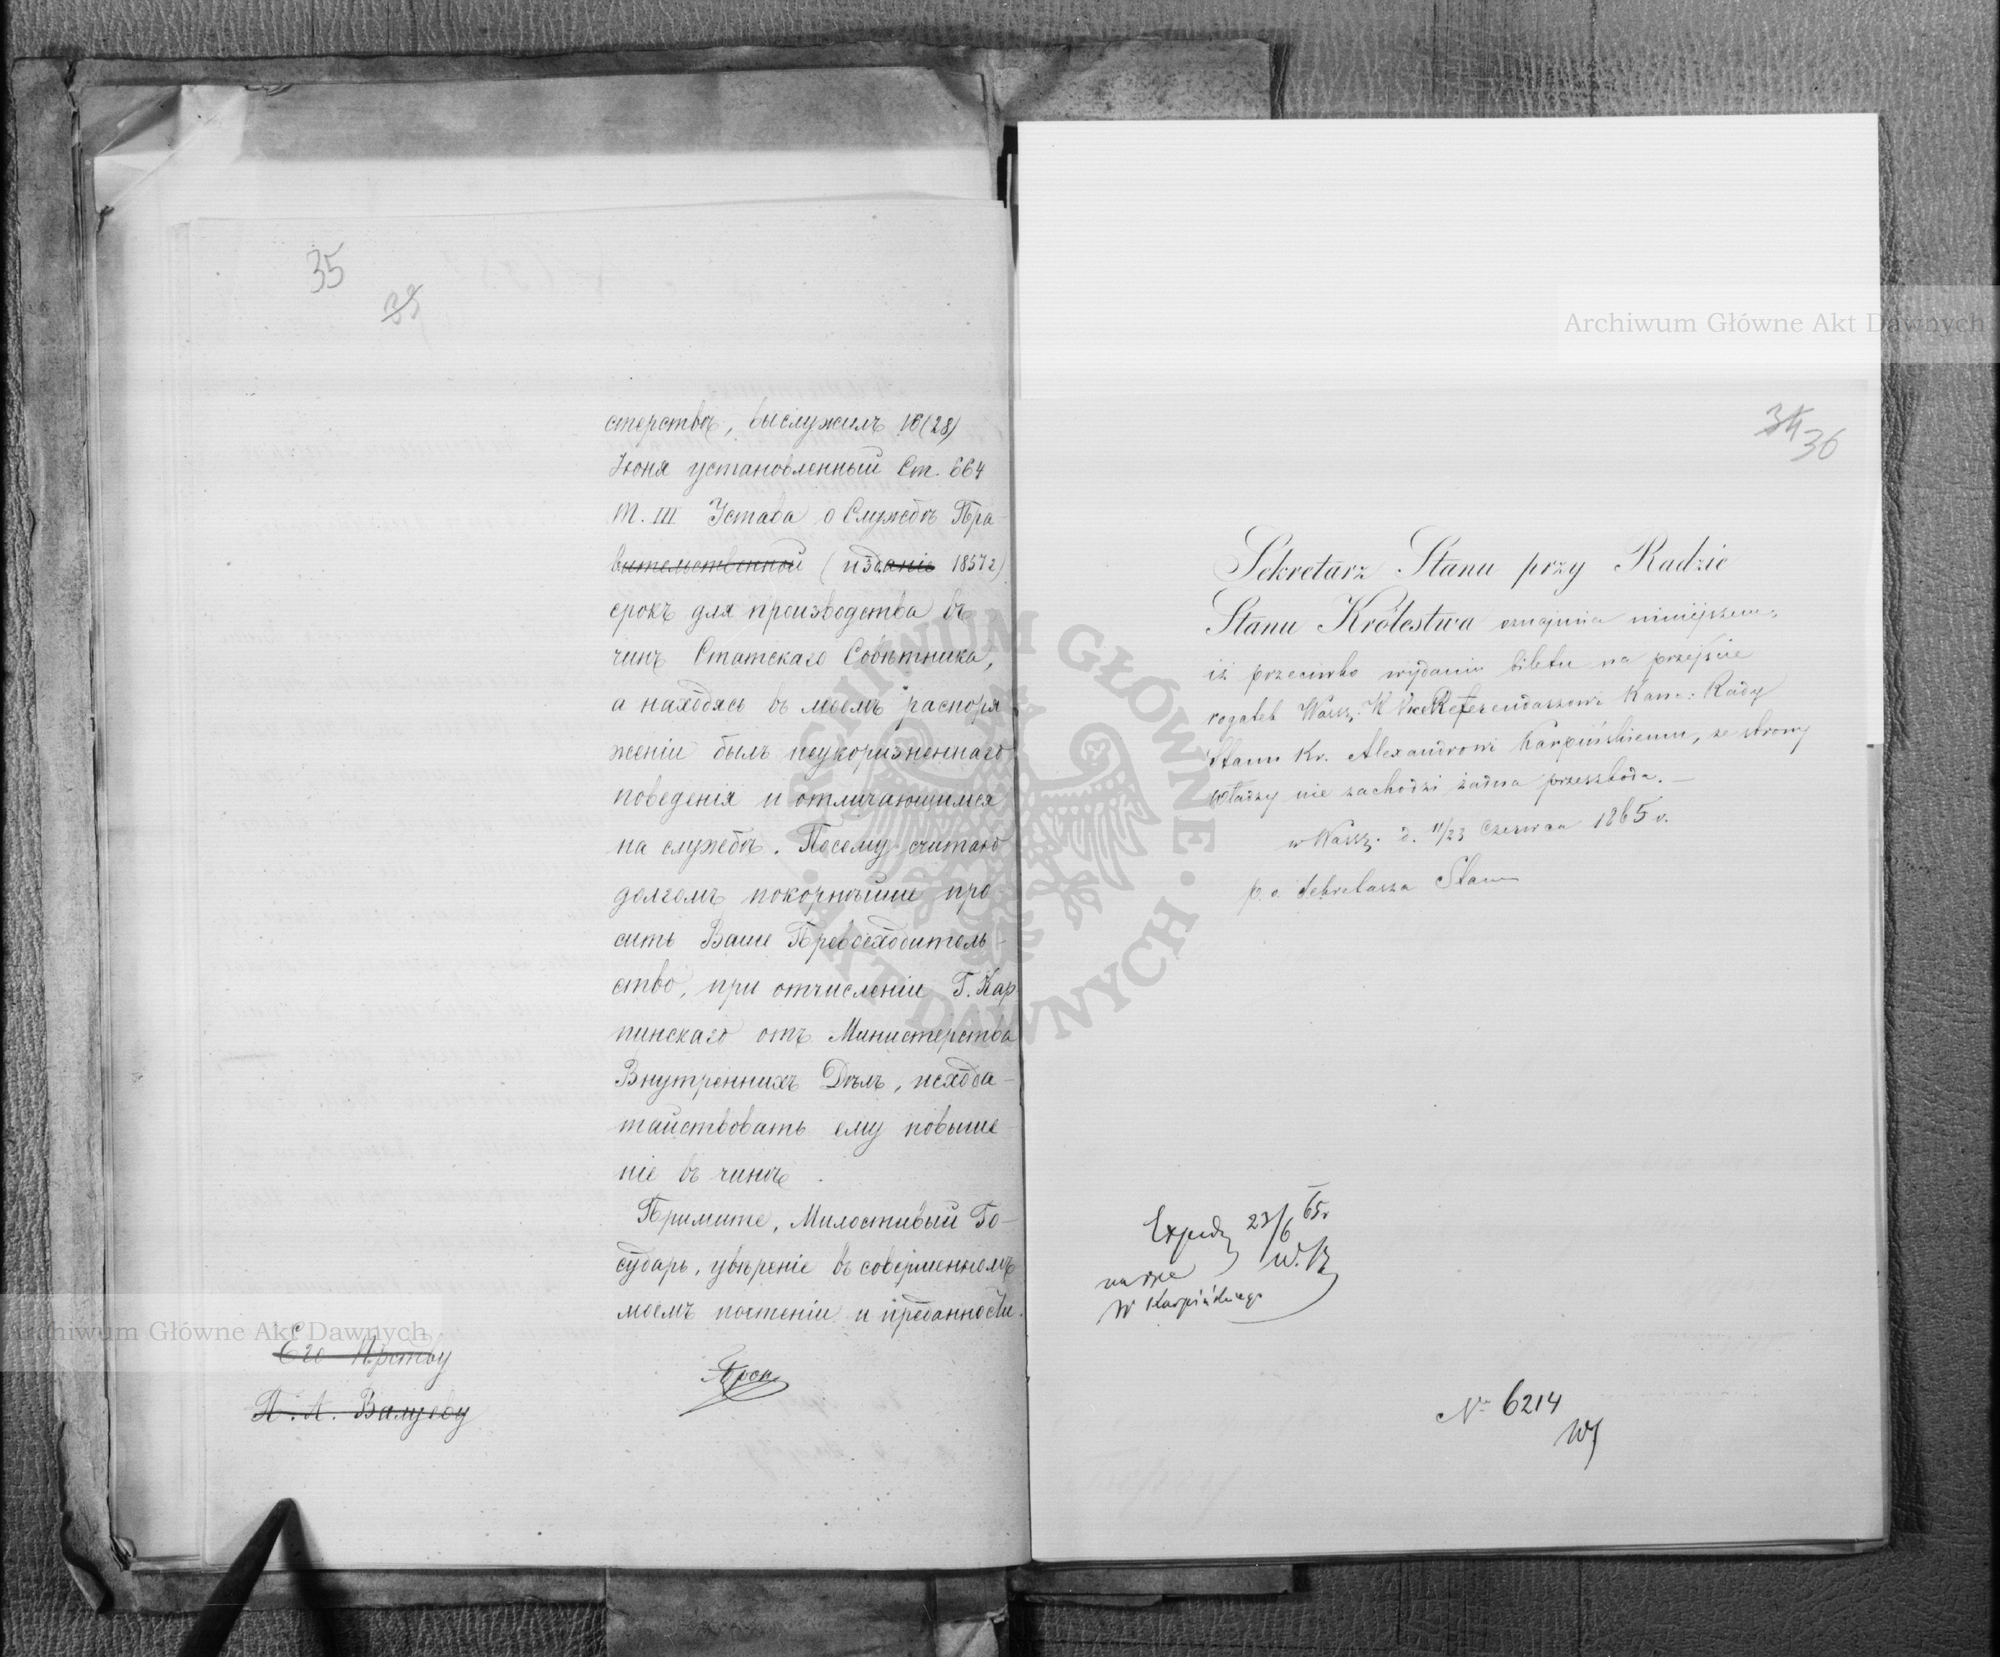 35
35
стерствѣ, выслужилъ 16(28)
Іюня установленный Ст. 664
Т. III Устава о Службѣ Пра-
вительственной (изданіе 1857 г)
срокъ для производства въ
чинъ Статскаго Совѣтника,
а находясь въ моемъ распоря
женіи былъ неукоризненнаго
поведенія и отличающимся
на службѣ. Посему считаю
долгомъ покорнѣйше про
сить Ваше Превосходитель-
ство, при отчисленіи Г. Кар
пинскаго отъ Министерства
Внутреннихъ Дѣлъ, исхода-
тайствовать ему повыше
ніе въ чинѣ.
Примите, Милостивый Го-
сударь, увѣреніе въ совершенномъ
моемъ почтеніи и преданности.
Его Прству
П. А. Валуеву
34 36
Sekretarz Stanu przy Radzie
Stanu Królestwa oznajmia niniejszem,
iż przeciwko wydaniu biletu na przejście
rogatek Warsz. W ViceReferendarzowi Kanc: Rady
Stanu Kr. Alexandrowi Karpińskiemu, ze strony
Władzy nie zachodzi żadna przeszkoda. —
w Warsz. d. 11/23 Czerwca 1865 r.
p. o. Sekretarza Stanu
23/6 65 r
W Karpińskiego
№ 6214
Archiwum Główne Akt Dawnych
Archiwum Główne Akt Dawnych
ARCHIWUM GŁÓWNE · AKT DAWNYCH ·